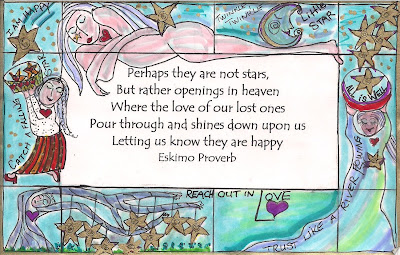 I AM HAPPY
TWINKLE
TWINKLE
LITTLE
STAR
Perhaps they are not stars,
But rather openings in heaven
Where the love of our lost ones
Pour through and shines down upon us
Letting us know they are happy
Eskimo Proverb
CATCH FALLEN
STARS
ALL IS WELL
REACH OUT IN LOVE
TRUST LIKE A RIVER FLOWING